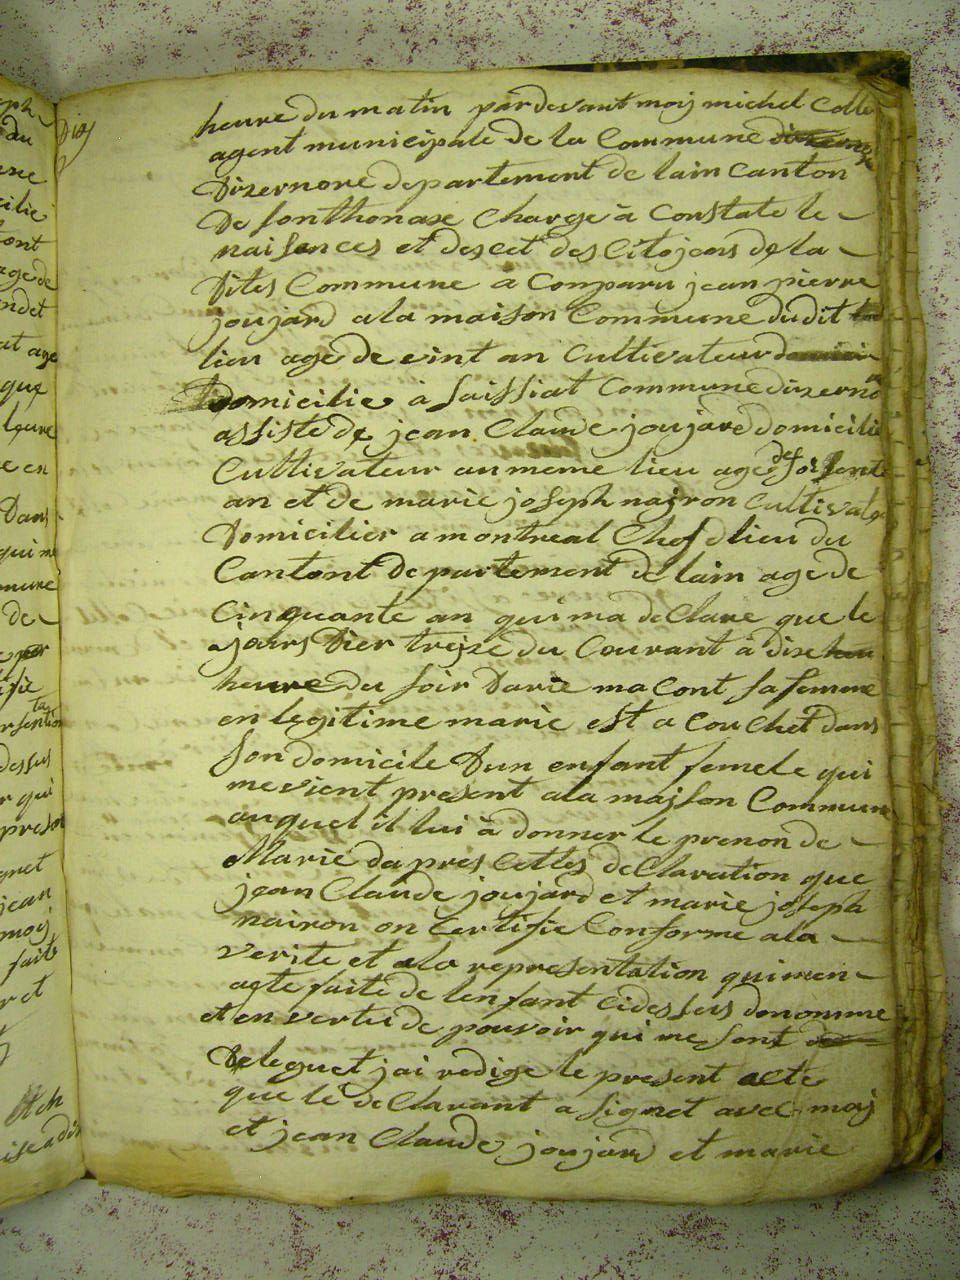 heure du matin pardevant moij michel Colle
agent municipale de la Commune
Dizernore departement de lain canton
De sonthonaxe Charge à Constate le
naissences et descet des Citojens de la
Dites Commune à Comparu jean pierre
joujard a la maison Commune dudit
lieu age de vint an Cultivateur
domicilie à saissiat Commune dizerno
assiste de jean Claude joujard domicilie
Cultivateur au meme lieu age de soissente
an et de marie joseph najron Cultival
Domicilier a montreal Chef dlieu du
Cantont departement de lain age de
Cinquante an qui ma de Clare que le
jours Dier treize du Courant à dixe
heure du soir Darie macont sa femme
en legitime marie est a Couchet dans
son domicile Dun enfant femele qui
me vient present a la majson Commune
auquel il lui à donner le prenon de
Marie da pres Celles de Claration que
jean Claude joujard et marie joseph
nairon on Certifie Conforme a la
verite et a la representation qui men
a ete faite de lenfant Cidessus denomme
et en vertu de pouvoir qui me sont
Deleguet jai redige le present acte
que le de Clarant a signet avec moij
et jean Claude joujard et marie